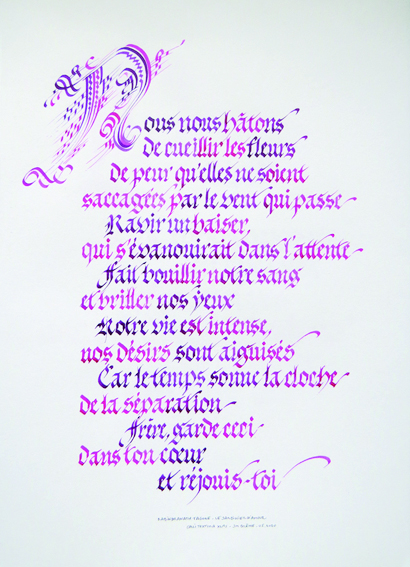 Nous nous hâtons
de cueillir les fleurs
de peur qu'elles ne soient
saccagées par le vent qui passe
Ravir un baiser,
qui s'évanouirait dans l'attente
fait bouillir notre sang
et briller nos yeux
Notre vie est intense,
nos désirs sont aiguisés
Car le temps sonne la cloche
de la séparation
frère, garde ceci
dans ton cœur
et réjouis-toi
RABINDRANATH TAGORE - LE JARDINIER D'AMOUR